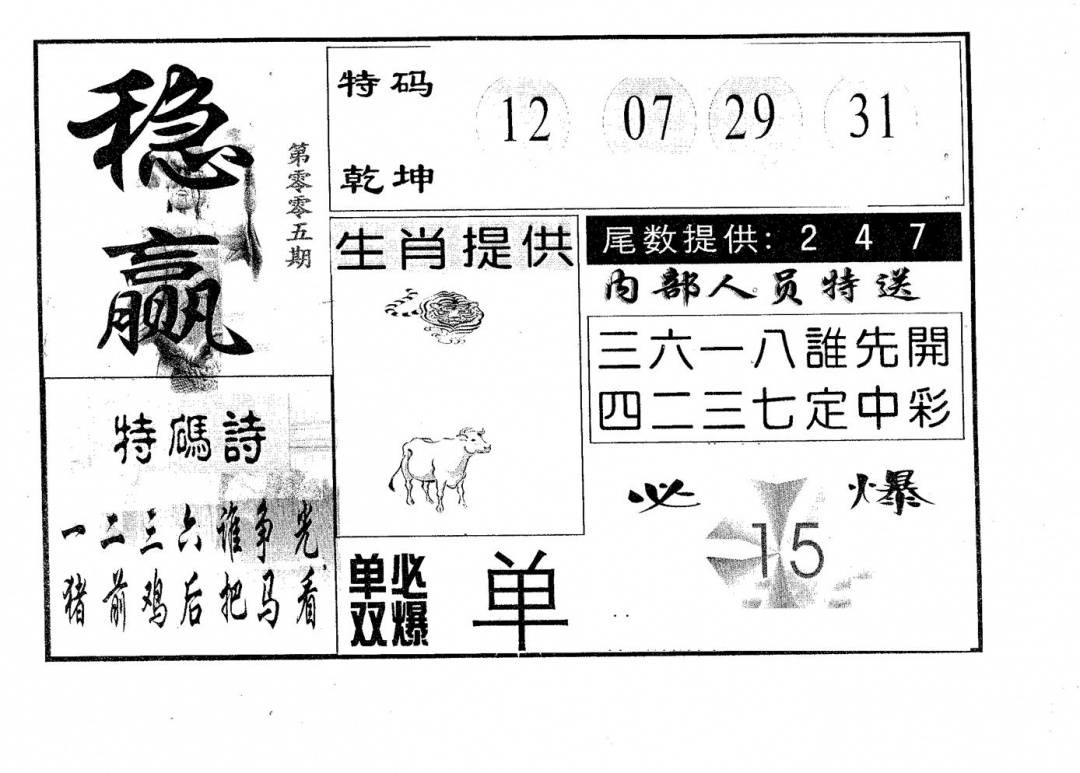 稳赢
第零零五期
特码
乾坤
12 07 29 31
生肖提供
尾数提供: 2 4 7
内部人员特送
三六一八誰先開
四二三七定中彩
特碼詩
一二三六谁争光
猪前鸡后把马看
必爆
15
单双
必爆
单